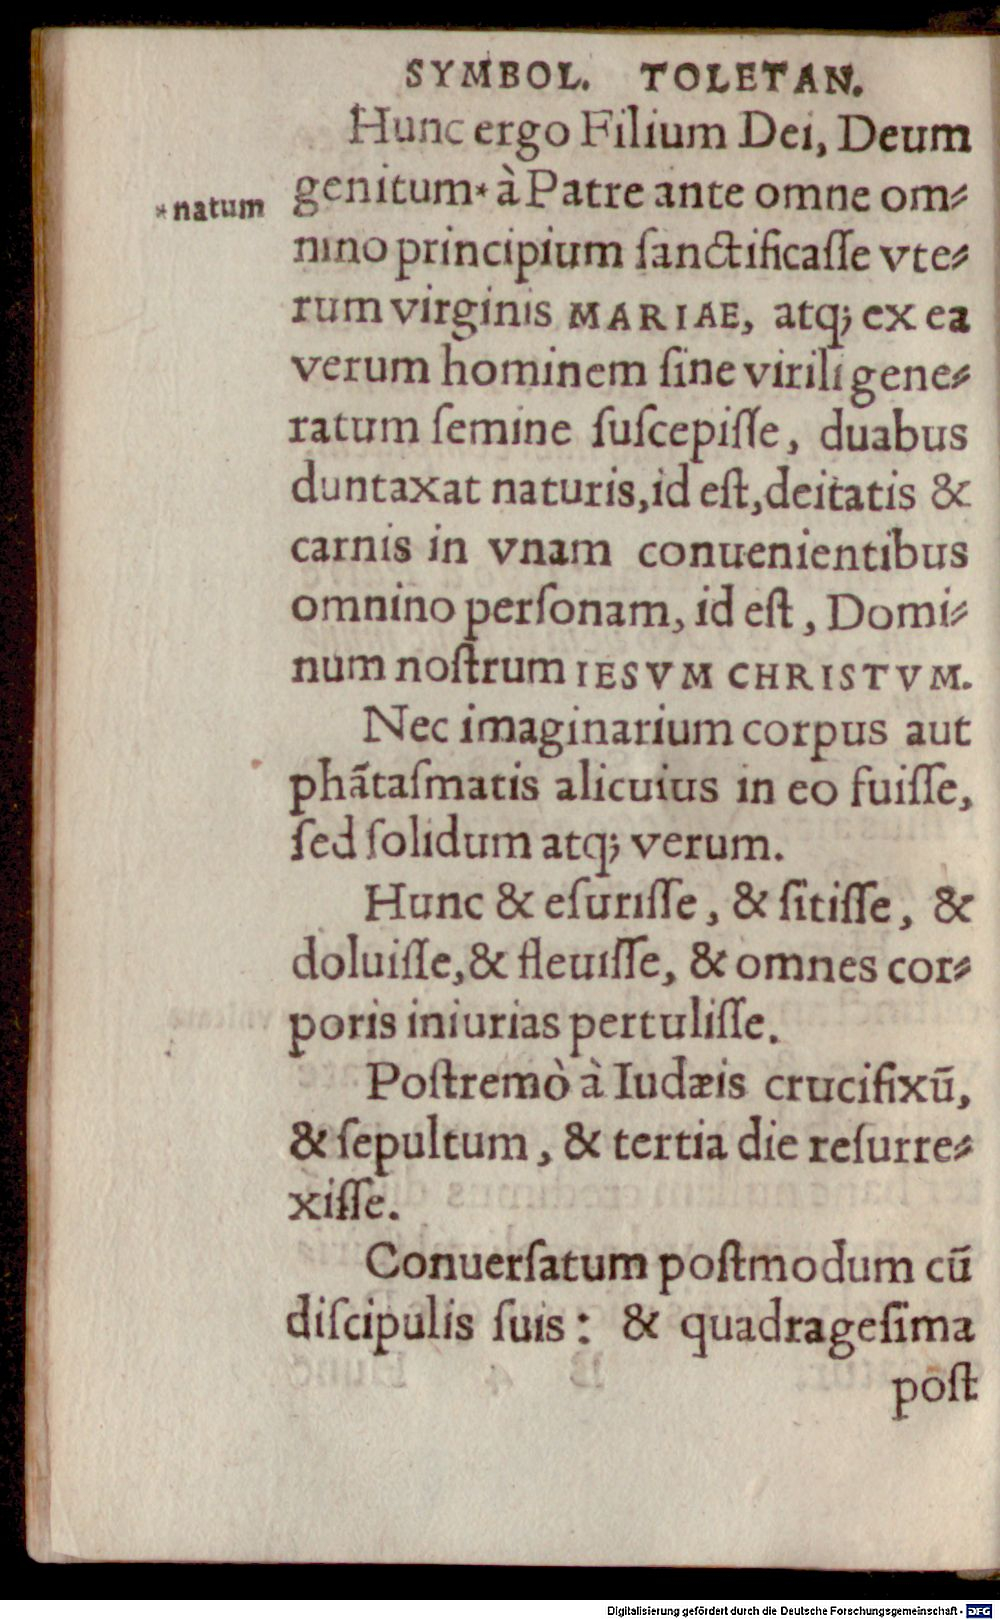 SYMBOL. TOLETAN.
Hunc ergo Filium Dei, Deum
*natum
genitum* à Patre ante omne om⸗
nino principium ſanctificaſſe vte⸗
rum virginis MARIAE, atq; ex ea
verum hominem ſine virili gene⸗
ratum ſemine ſuſcepiſſe, duabus
duntaxat naturis, id eſt, deitatis &
carnis in vnam conuenientibus
omnino perſonam, id eſt, Domi⸗
num noſtrum IESVM CHRISTVM.
Nec imaginarium corpus aut
phãtaſmatis alicuius in eo fuiſſe,
ſed ſolidum atq; verum.
Hunc & eſuriſſe, & ſitiſſe, &
doluiſſe, & fleuiſſe, & omnes cor⸗
poris iniurias pertuliſſe.
Poſtremò à Iudæis crucifixũ,
& ſepultum, & tertia die reſurre⸗
xiſſe.
Conuerſatum poſtmodum cũ
diſcipulis ſuis: & quadrageſima
poſt
Digitalisierung gefördert durch die Deutsche Forschungsgemeinschaft - DFG